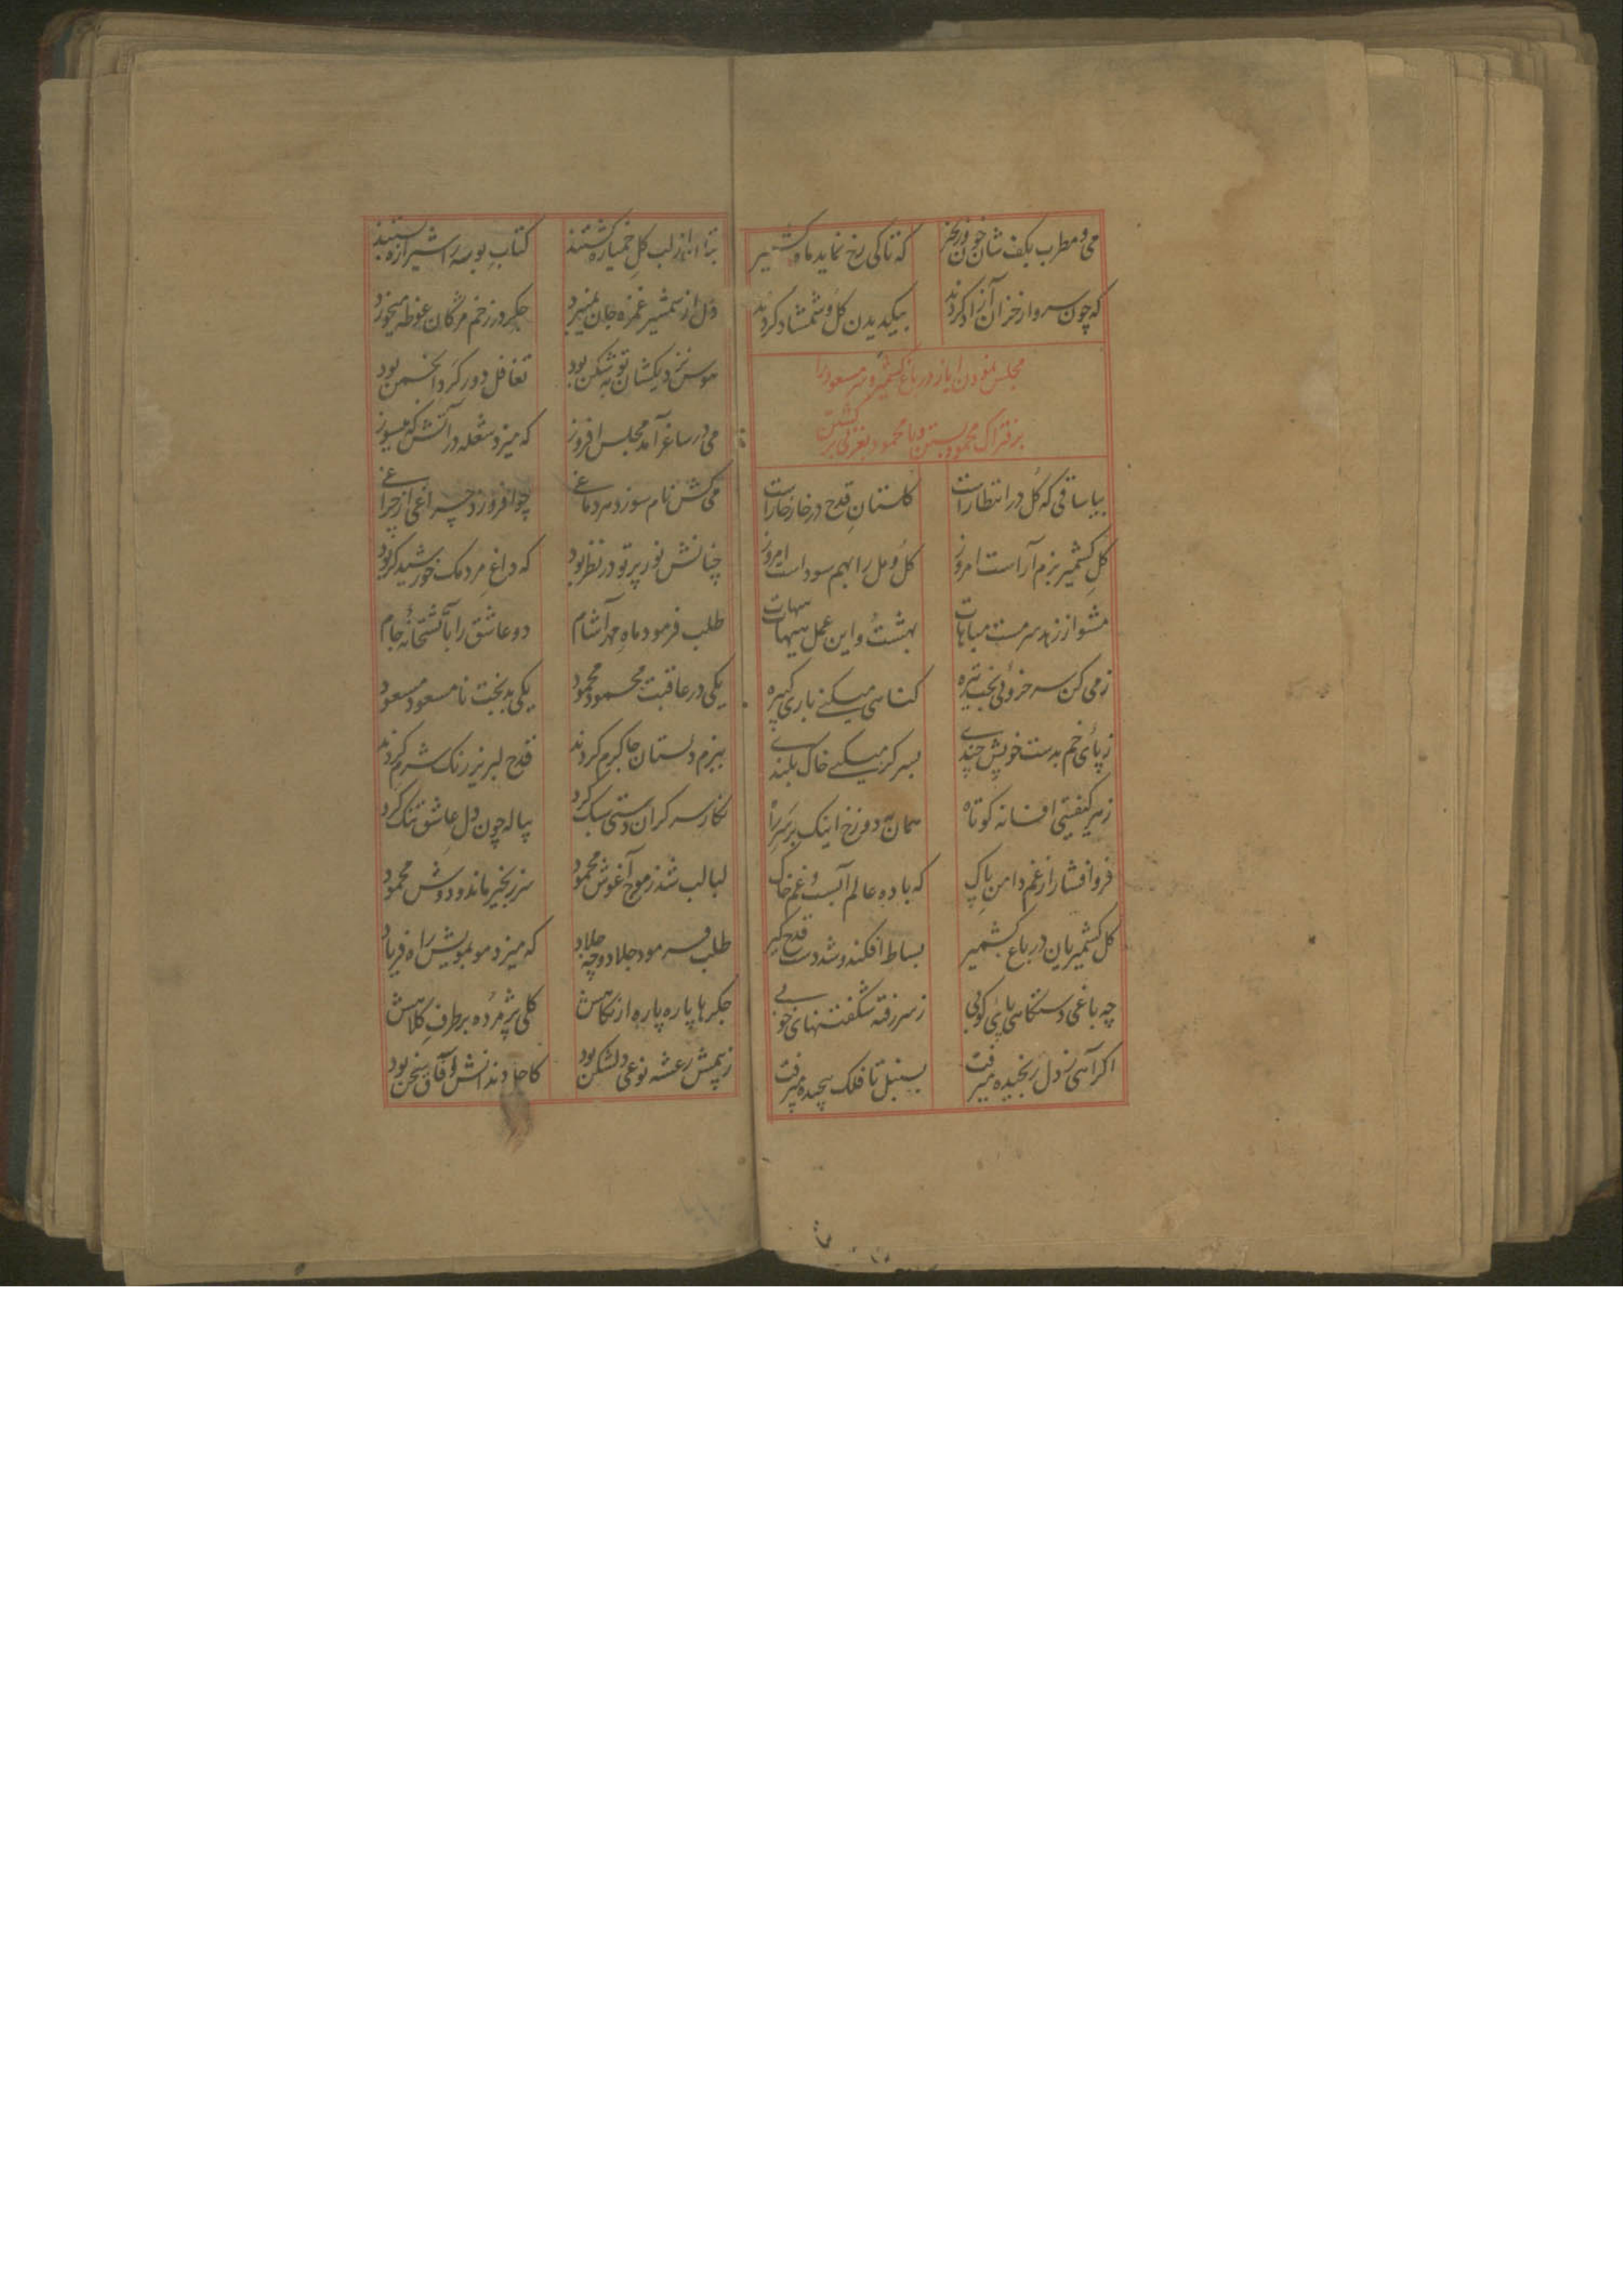 می و مطرب بکف شان خون ریز که تا کی رخ نماید ماه کشمیر
که چون سرو از خزان آزاد کردند بیکدیدن گل و شمشاد کردند
مجلس نمودن ایاز در باغ کشمیر و سر مسعود را
بر فتراک محمود بستن و با محمود بغزنی برگشتن
بیا ساقی که گل در انتظارست گلستان قدح در خار خارست
گل کشمیر بزم آراست امروز گل و مل را بهم سوداست امروز
مشو از زهد سرمست مباهات بهشت و این عمل هیهات هیهات
ز می کن سرخ روئی بخت تیره گناهی میکنی باری کبیره
ز پای خم بدست خویش چندی بسر گر میکنی خاک بلندی
ز هر کیفیتی افسانه کوتاه همان به دوزخ اینک بر سر راه
فرو افشار از غم دامن پاک که باده عالم آبست و غم خاک
گل کشمیریان در باغ کشمیر بساط افکند و شد دست قدح گیر
چه باغی دستگاهی پای کوبی ز سر رفته شگفتنهای خوبی
اگر آهی ز دل رنجیده میرفت بسنبل تا فلک پیچیده میرفت
بتان از لب گل خمیازه کشتند کتاب بوسه را شیرازه بستند
دل از شمشیر غمزه جان نمیبرد جگر در زخم مژگان غوطه میخورد
هوس نزدیکشان توبه شکن بود تغافل دور گرد انجمن بود
می در ساغر آمد مجلس افروز که میزد شعله در آتش که میسوز
می کش نام سوزد هر دماغی چو افروزد چراغی از چراغی
چنانش نور پرتو در نظر بود که داغ مردمک خورشید گر بود
طلب فرمود ماه مهر آشام دو عاشق را بآتشخانه جام
یکی در عاقبت محمود محمود یکی بدبخت نامسعود مسعود
ببزم دلستان جا گرم کردند قدح لبریز رنگ شرم کردند
نگار سر گران دستی سبک کرد پیاله چون دل عاشق تنک کرد
لبالب شد ز موج آغوش محمود بزنجیر ماند و دوش محمود
طلب فرمود جلادو چه جلاد که میزد مو بمویش راه فریاد
جگرها پاره پاره از نگاهش گلی پژمرده بر طرف کلاهش
ز بیمش رعشه نوعی دلشکن بود کاجل دندانش آفاق سخن بود